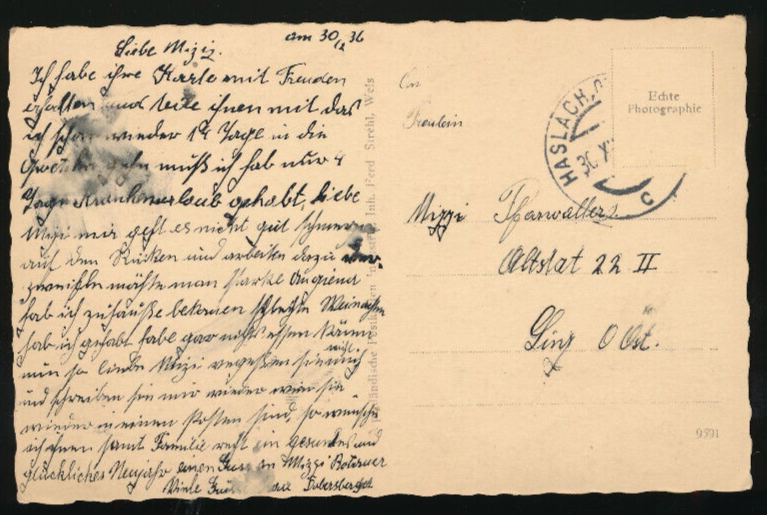 am 30/X 36
Liebe Mizi.
Ich habe ihre Karte mit Freuden
erhalten und teile ihnen mit das
ich schon wieder 14 Tage in die
muß ich hab nur 4
Tage Krankenurlaub gehabt, liebe
Mizi mir geht es nicht gut schmerzen
auf den Rücken und arbeiten dazu
zweifeln möchte man starke
hab ich zuhauße bekomen schlechte Weinachten
hab ich gehabt habe gar nichts essen könen
nun so liebe Mizi vergeßen sie mich nicht
und schreiben sie mir wieder wen sie
wieder in einen Posten sind, so wünsche
ich ihnen samt Familie recht ein gesundes und
glückliches Neujahr einen Gruß an Mizzi
Viele
Inh. Ferd Strehl, Wels
An
Fräulein
HASLACH
30 X
c
Echte
Photographie
Mizzi
Altstat 22 II
Linz O Öst.
9591